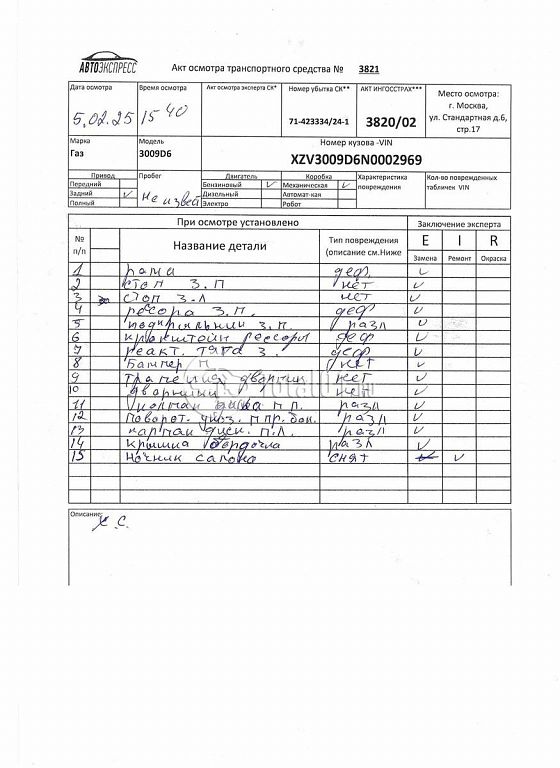 АВТОЭКСПРЕСС
Акт осмотра транспортного средства № 3821
Дата осмотра Время осмотра Акт осмотра эксперта СК* Номер убытка СК** АКТ ИНГОССТРАХ*** Место осмотра:
г. Москва,
ул. Стандартная д.6,
стр.17
5.02.25 15 40 71-423334/24-1 3820/02
Марка Модель Номер кузова -VIN
Газ 3009D6 XZV3009D6N0002969
Привод Пробег Двигатель Коробка Характеристика повреждения Кол-во поврежденных табличек VIN
Передний Бензиновый Механическая
Задний Не извес Дизельный Автомат-кая
Полный Электро Робот
При осмотре установлено Заключение эксперта
№ п/п Название детали Тип повреждения (описание см.Ниже E I R
Замена Ремонт Окраска
1 рама деф
2 стоп З.П нет
3 стоп З.Л нет
4 рессора З.П. деф
5 З.П. разл
6 кронштейн рессоры деф
7 реакт. тяга З. деф
8 Бампер П нет
9 трапеция дворник нет
10 дворники нет
11 п п. разл
12 Поворот. п пр. бок. разл
13 П.Л. разл
14 крышка бардачка разл
15 Ночник салона снят
Описание:
х. с.